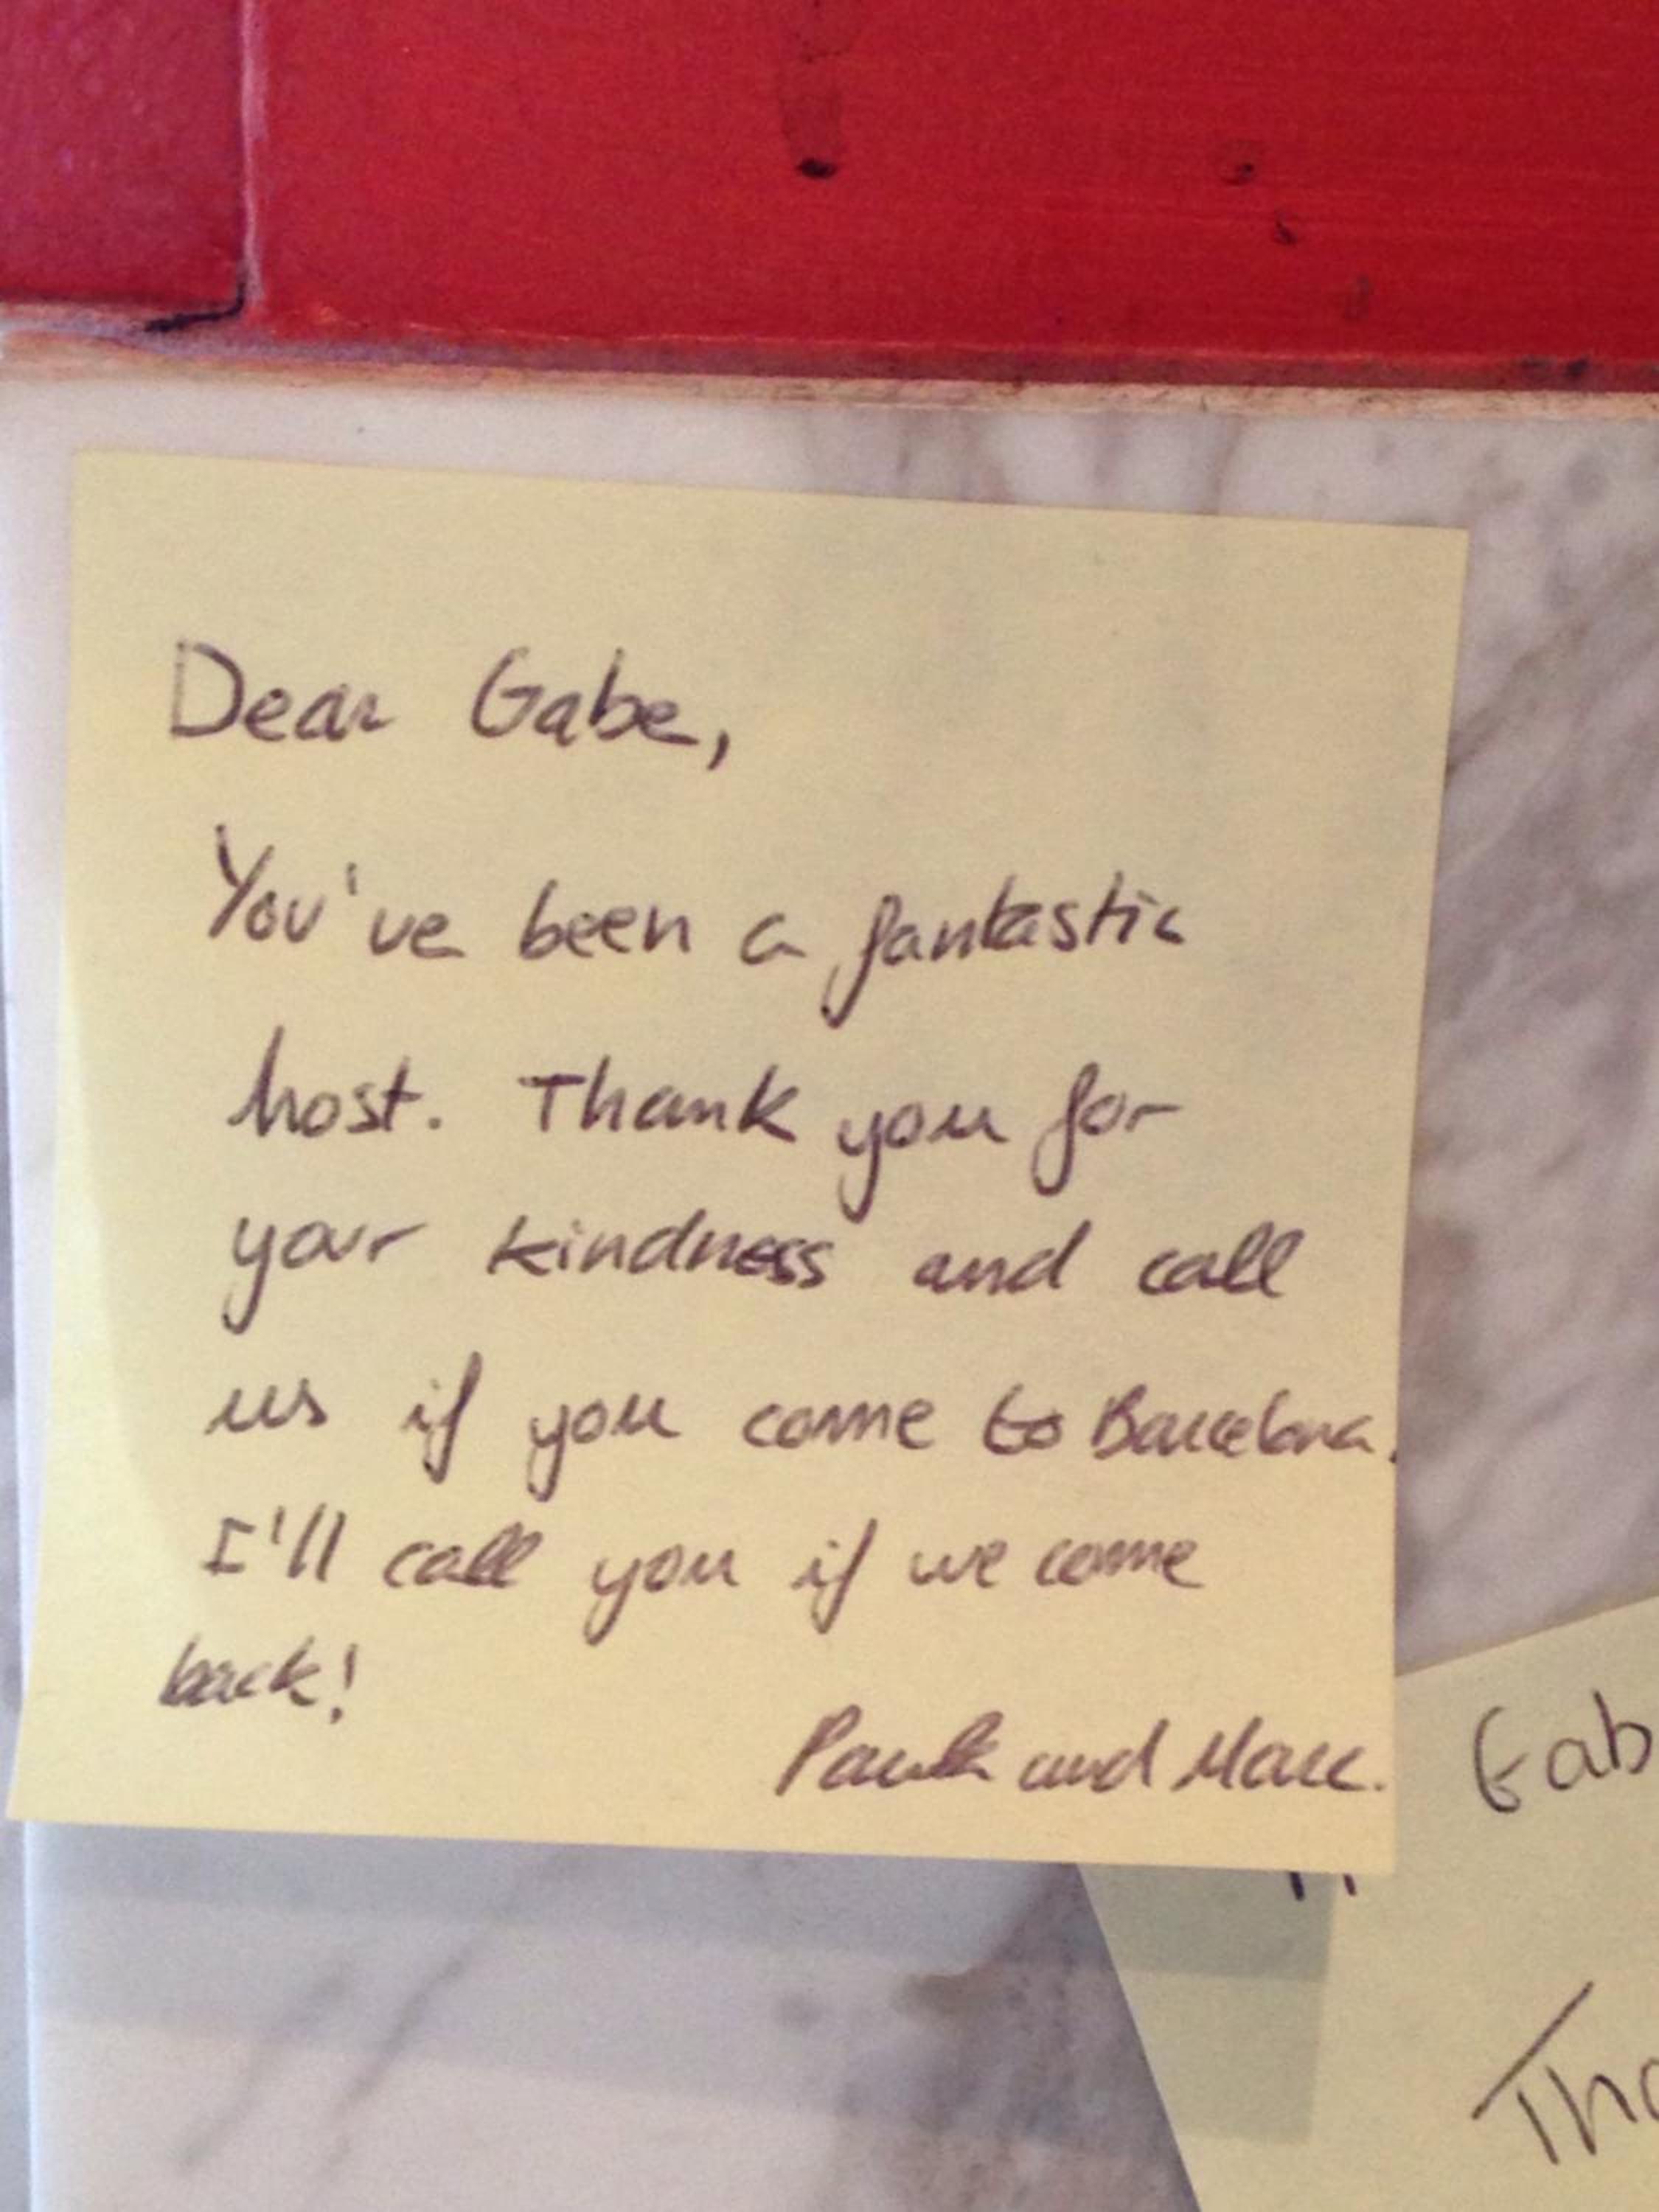 Dear Gabe,
You've been a fantastic
host. Thank you for
your kindness and call
us if you come to Barcelona.
I'll call you if we come
back!
Paula and Marc.
Gab
Tha